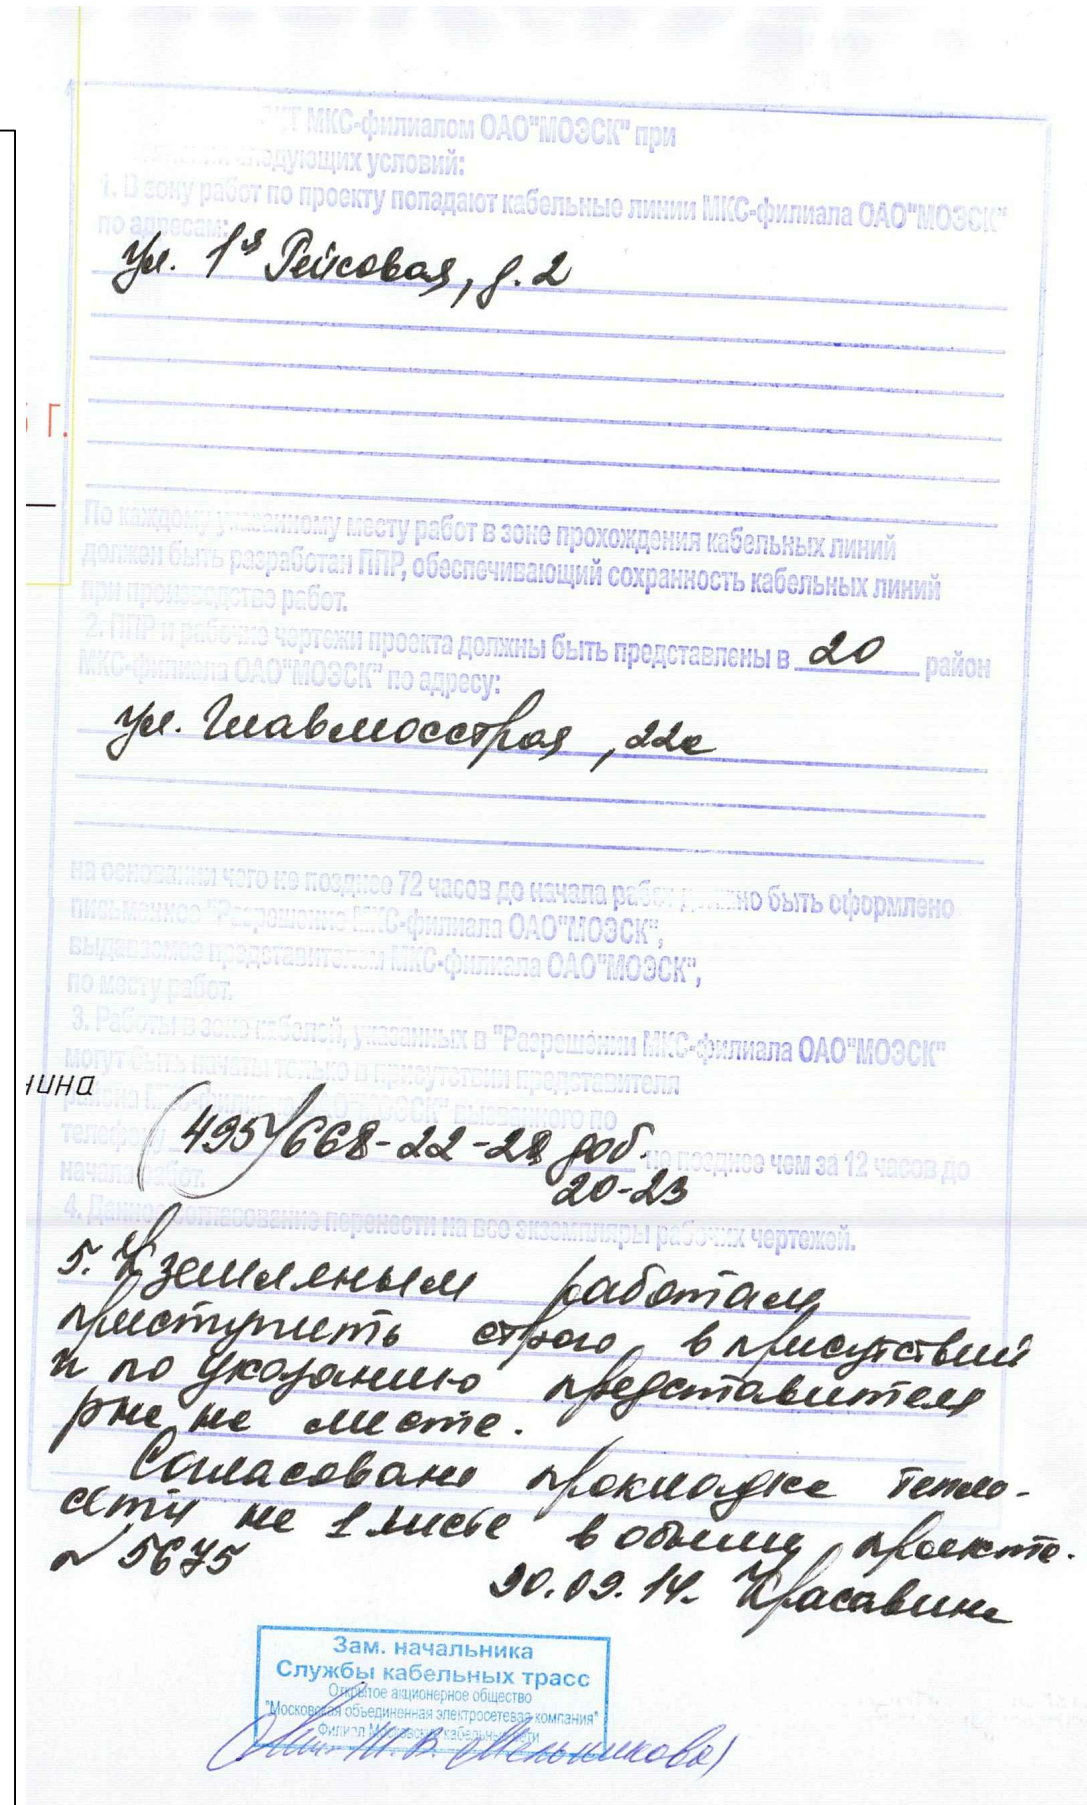 МКС-филиалом ОАО"МОЭСК" при
следующих условий:
1. В зону работ по проекту попадают кабельные линии МКС-филиала ОАО"МОЭСК"
по адресам:
ул. 1я Рейсовая, д. 2
Г.
По каждому указанному месту работ в зоне прохождения кабельных линий
должен быть разработан ППР, обеспечивающий сохранность кабельных линий
при производстве работ.
2. ППР и рабочие чертежи проекта должны быть представлены в 20 район
МКС-филиала ОАО"МОЭСК" по адресу:
ул. Главмосстроя, 22а
на основании чего не позднее 72 часов до начала работ должно быть оформлено
письменное "Разрешение МКС-филиала ОАО"МОЭСК",
выдаваемое представителем МКС-филиала ОАО"МОЭСК",
по месту работ.
3. Работы в зоне кабелей, указанных в "Разрешении МКС-филиала ОАО"МОЭСК"
могут быть начаты только в присутствии представителя
нина
района МКС-филиала ОАО"МОЭСК" вызванного по
телефону (495)668-22-28 доб. не позднее чем за 12 часов до
20-23
начала работ.
4. Данное согласование перенести на все экземпляры рабочих чертежей.
5. К земляным работам
приступить строго в присутствии
и по указанию представителя
на месте.
Согласована прокладка тепло-
сети на 1 листе в объеме проекта.
№ 5675
90.09.14. Красавина
Зам. начальника
Службы кабельных трасс
Открытое акционерное общество
"Московская объединенная электросетевая компания"
Филиал Московские кабельные сети
Н.В. Мельникова)